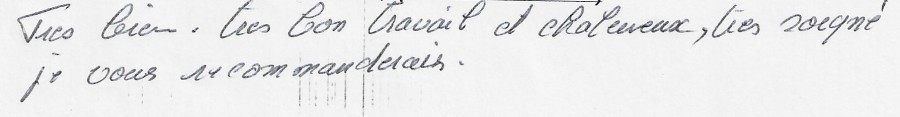 Tres bien. tres bon travail et chaleureux, tres soigné
je vous recommanderais.